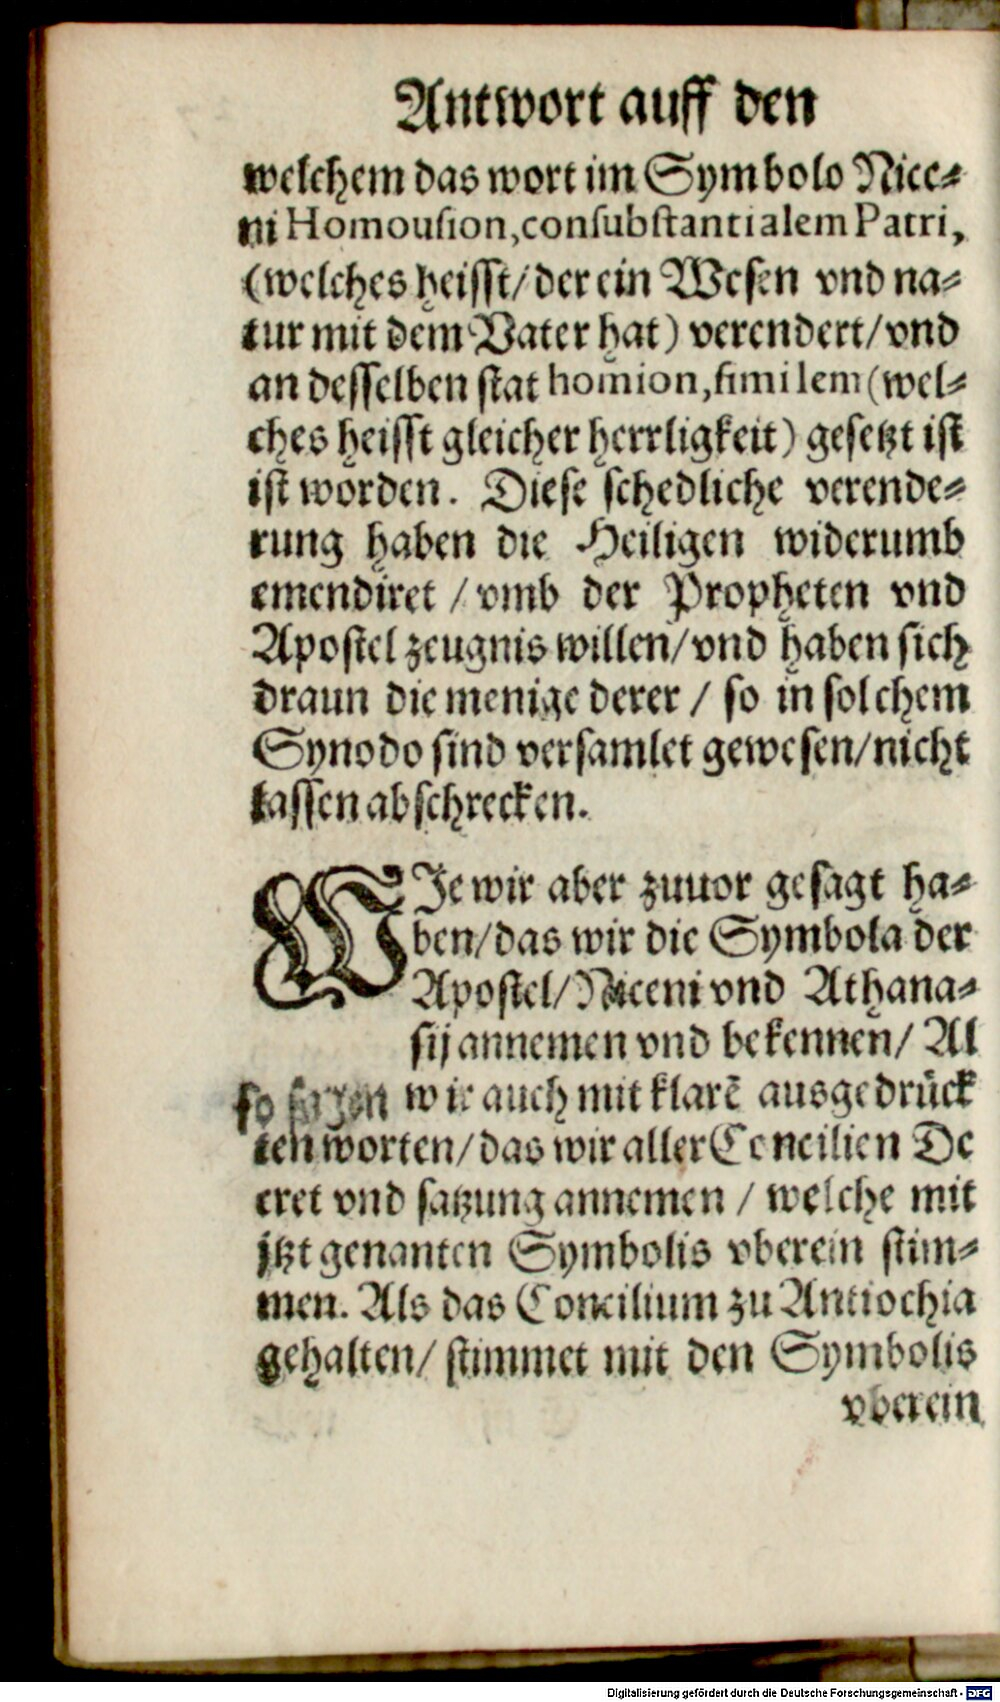 Antwort auff den
welchem das wort im Symbolo Nice⸗
ni Homouſion, conſubſtantialem Patri,
(welches heiſſt/ der ein Weſen vnd na⸗
tur mit dem Vater hat) verendert/ vnd
an deſſelben ſtat homion, ſimilem (wel⸗
ches heiſſt gleicher herrligkeit) geſetzt iſt
iſt worden. Dieſe ſchedliche verende⸗
rung haben die Heiligen widerumb
emendiret / vmb der Propheten vnd
Apoſtel zeugnis willen/ vnd haben ſich
draun die menige derer / ſo in ſolchem
Synodo ſind verſamlet geweſen/ nicht
laſſen abſchrecken.
WIe wir aber zuuor geſagt ha⸗
ben/ das wir die Symbola der
Apoſtel/ Niceni vnd Athana⸗
ſij annemen vnd bekennen/ Al
ſo ſagen wir auch mit klarẽ ausgedrück
ten worten/ das wir aller Concilien De
cret vnd ſatzung annemen / welche mit
jtzt genanten Symbolis vberein ſtim⸗
men. Als das Concilium zu Antiochia
gehalten/ ſtimmet mit den Symbolis
vberein
Digitalisierung gefördert durch die Deutsche Forschungsgemeinschaft - DFG